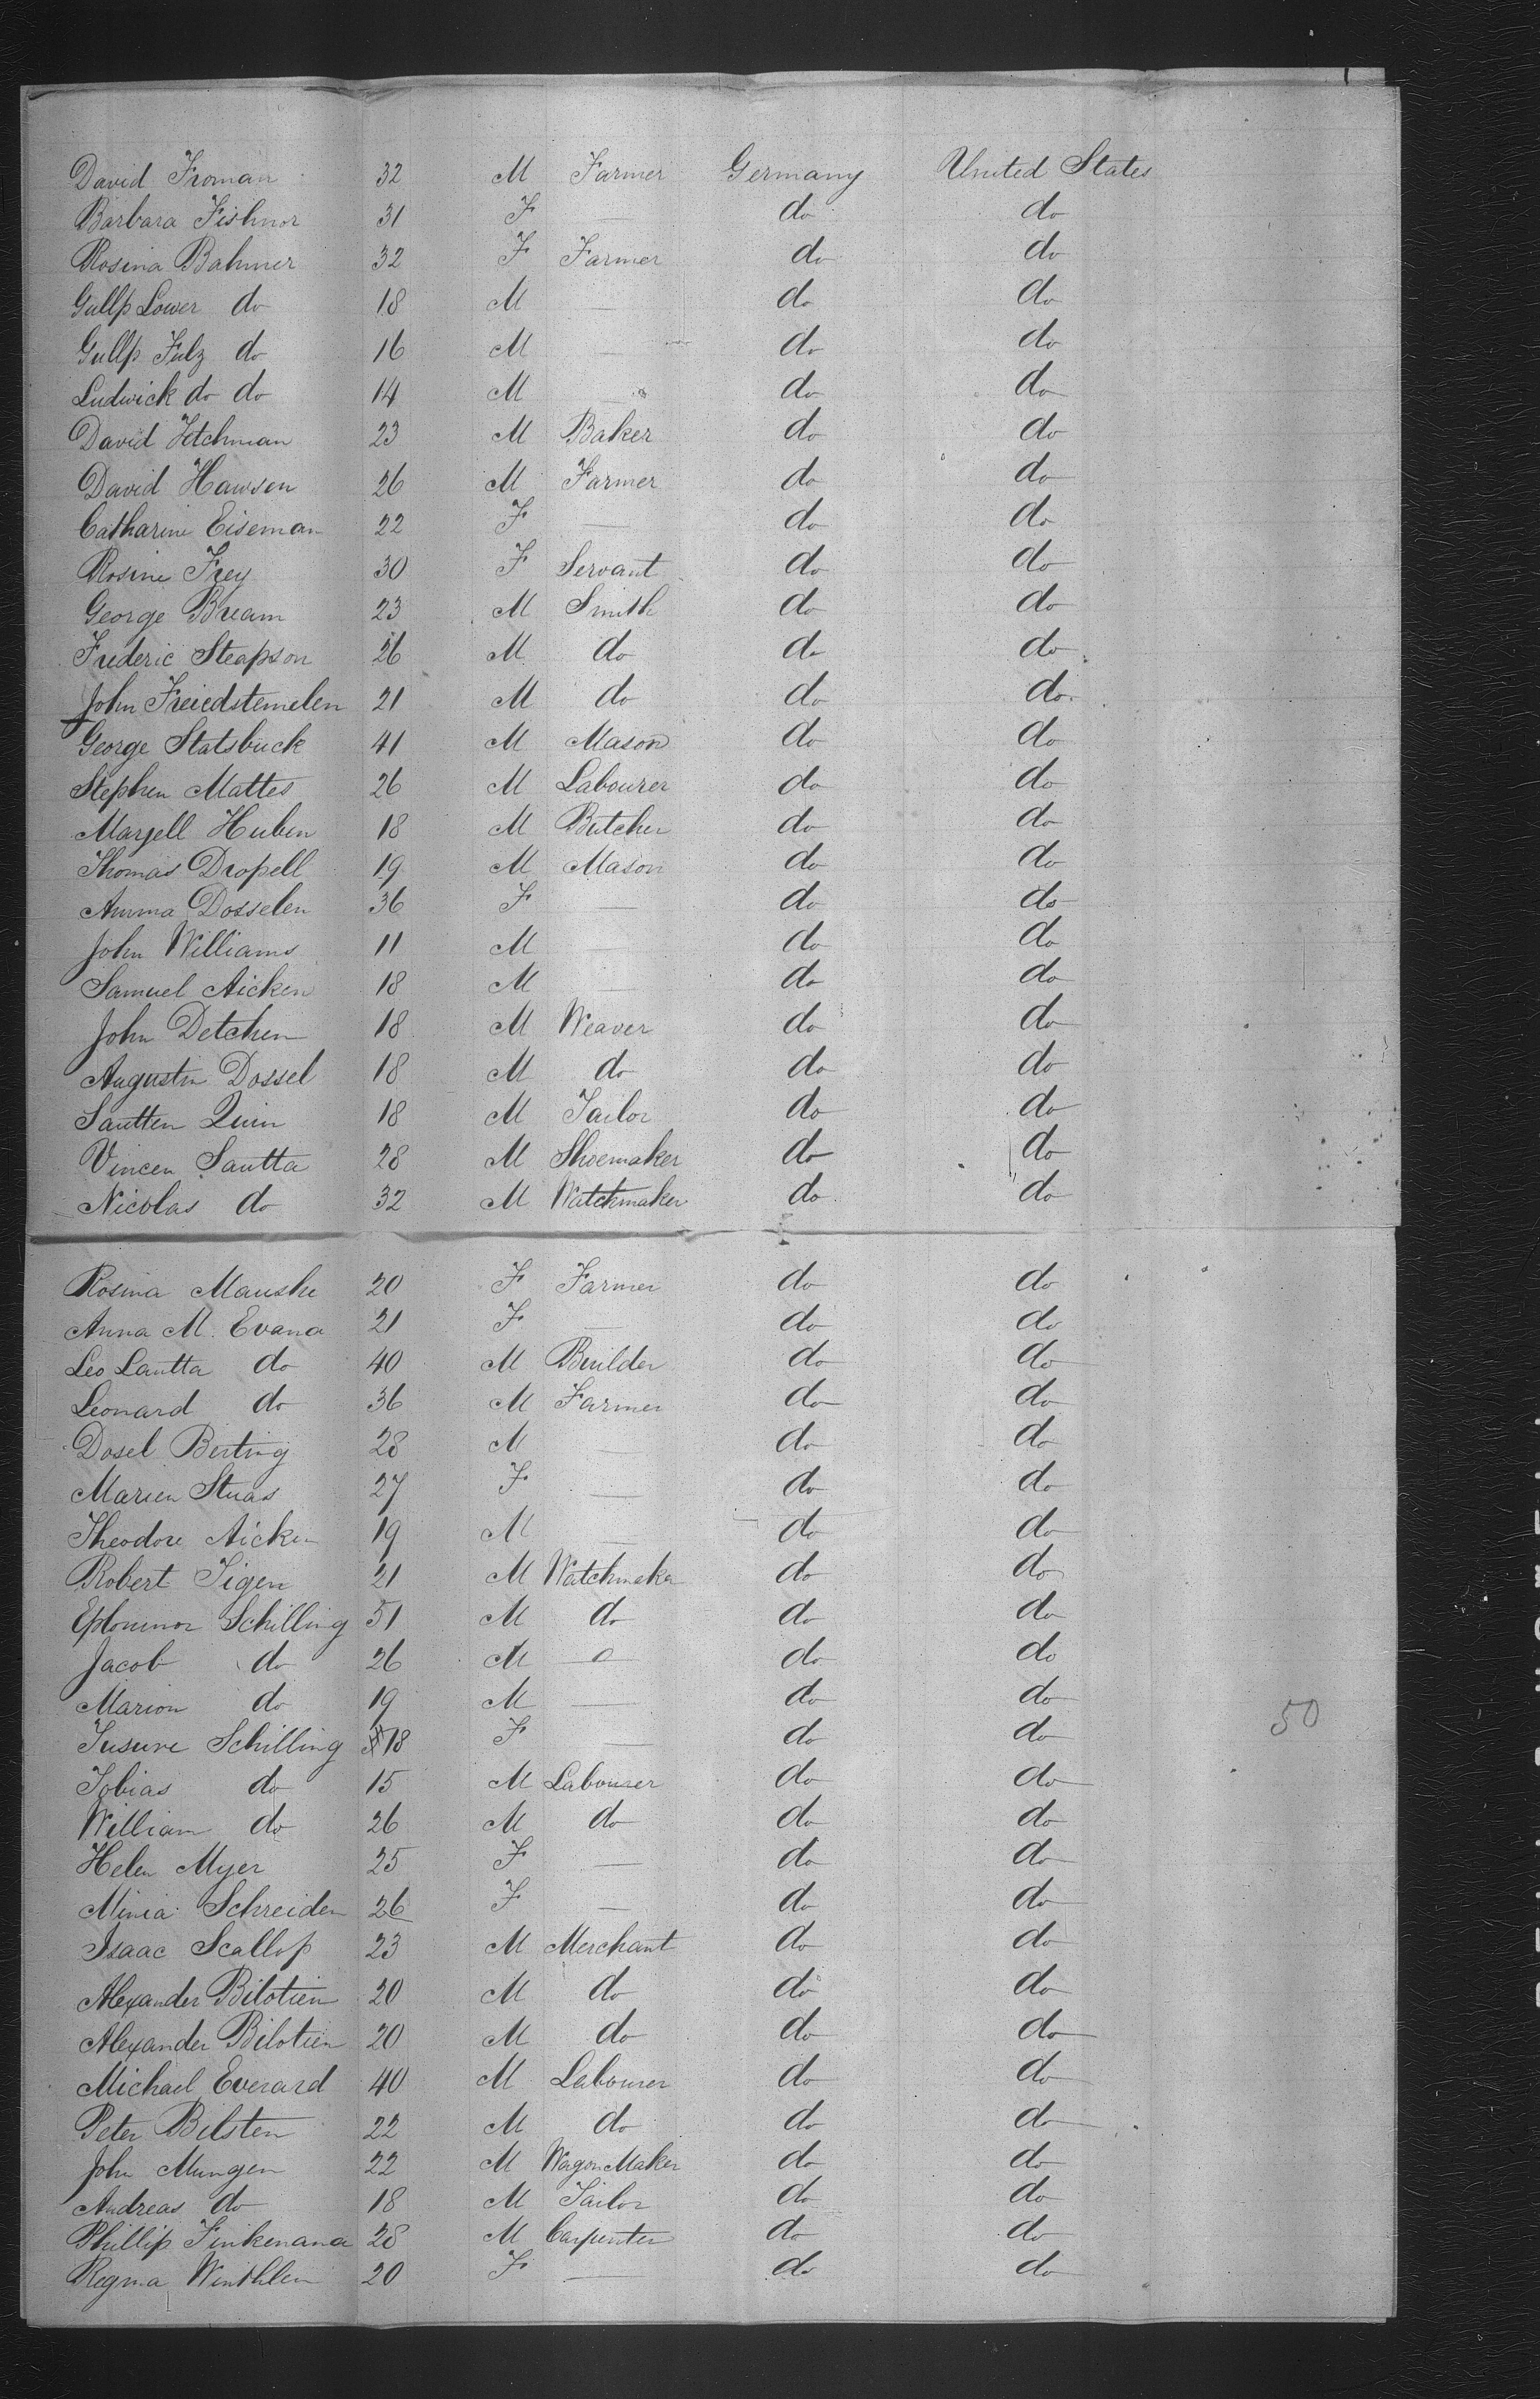 David Froman 32 M Farmer Germany United States
Barbara Fishnor 31 F — do do
Rosina Bahmer 32 F Farmer do do
Gullp Lower do 18 M — do do
Gullp Fulz do 16 M — do do
Ludwick do do 14 M — do do
David Fetchman 23 M Baker do do
David Hawsen 26 M Farmer do do
Catharine Eiseman 22 F — do do
Rosine Frey 30 F Servant do do
George Bream 23 M Smith do do
Frederic Steapson 26 M do do do
John Freiedstemelen 21 M do do do
George Statsbuck 41 M Mason do do
Stephen Mattes 26 M Labourer do do
Maryell Huben 18 M Butcher do do
Thomas Dropell 19 M Mason do do
Amma Dosselen 36 F — do do
John Williams 11 M — do do
Samuel Aicken 18 M — do do
John Detchen 18 M Weaver do do
Augustin Dossel 18 M do do do
Sautten Quin 18 M Tailor do do
Vincen Sautta 28 M Shoemaker do do
Nicolas do 32 M Watchmaker do do
Rosina Maushe 20 F Farmer do do
Anna M. Evana 21 F — do do
Leo Lautta do 40 M Builder do do
Leonard do 36 M Farmer do do
Dosel Berting 28 M — do do
Marien Stuas 27 F — do do
Theodore Aicken 19 M — do do
Robert Tigen 21 M Watchmaker do do
Schilling 51 M do do do
Jacob do 26 M do do
Marion do 19 M — do do
Susune Schilling 18 F — do do
50
Tobias do 15 M Labourer do do
William do 26 M do do do
Helen Myer 25 F — do do
Minia Schreiden 26 F — do do
Isaac Scallop 23 M Merchant do do
Alexander Bilotien 20 M do do do
Alexander Bilotien 20 M do do do
Michael Everard 40 M Labourer do do
Peter Bilsten 22 M do do do
John Mungen 22 M Wagon Maker do do
Andreas do 18 M Tailor do do
Phillip Finkenana 28 M Carpenter do do
Regina Winthlen 20 F — do do